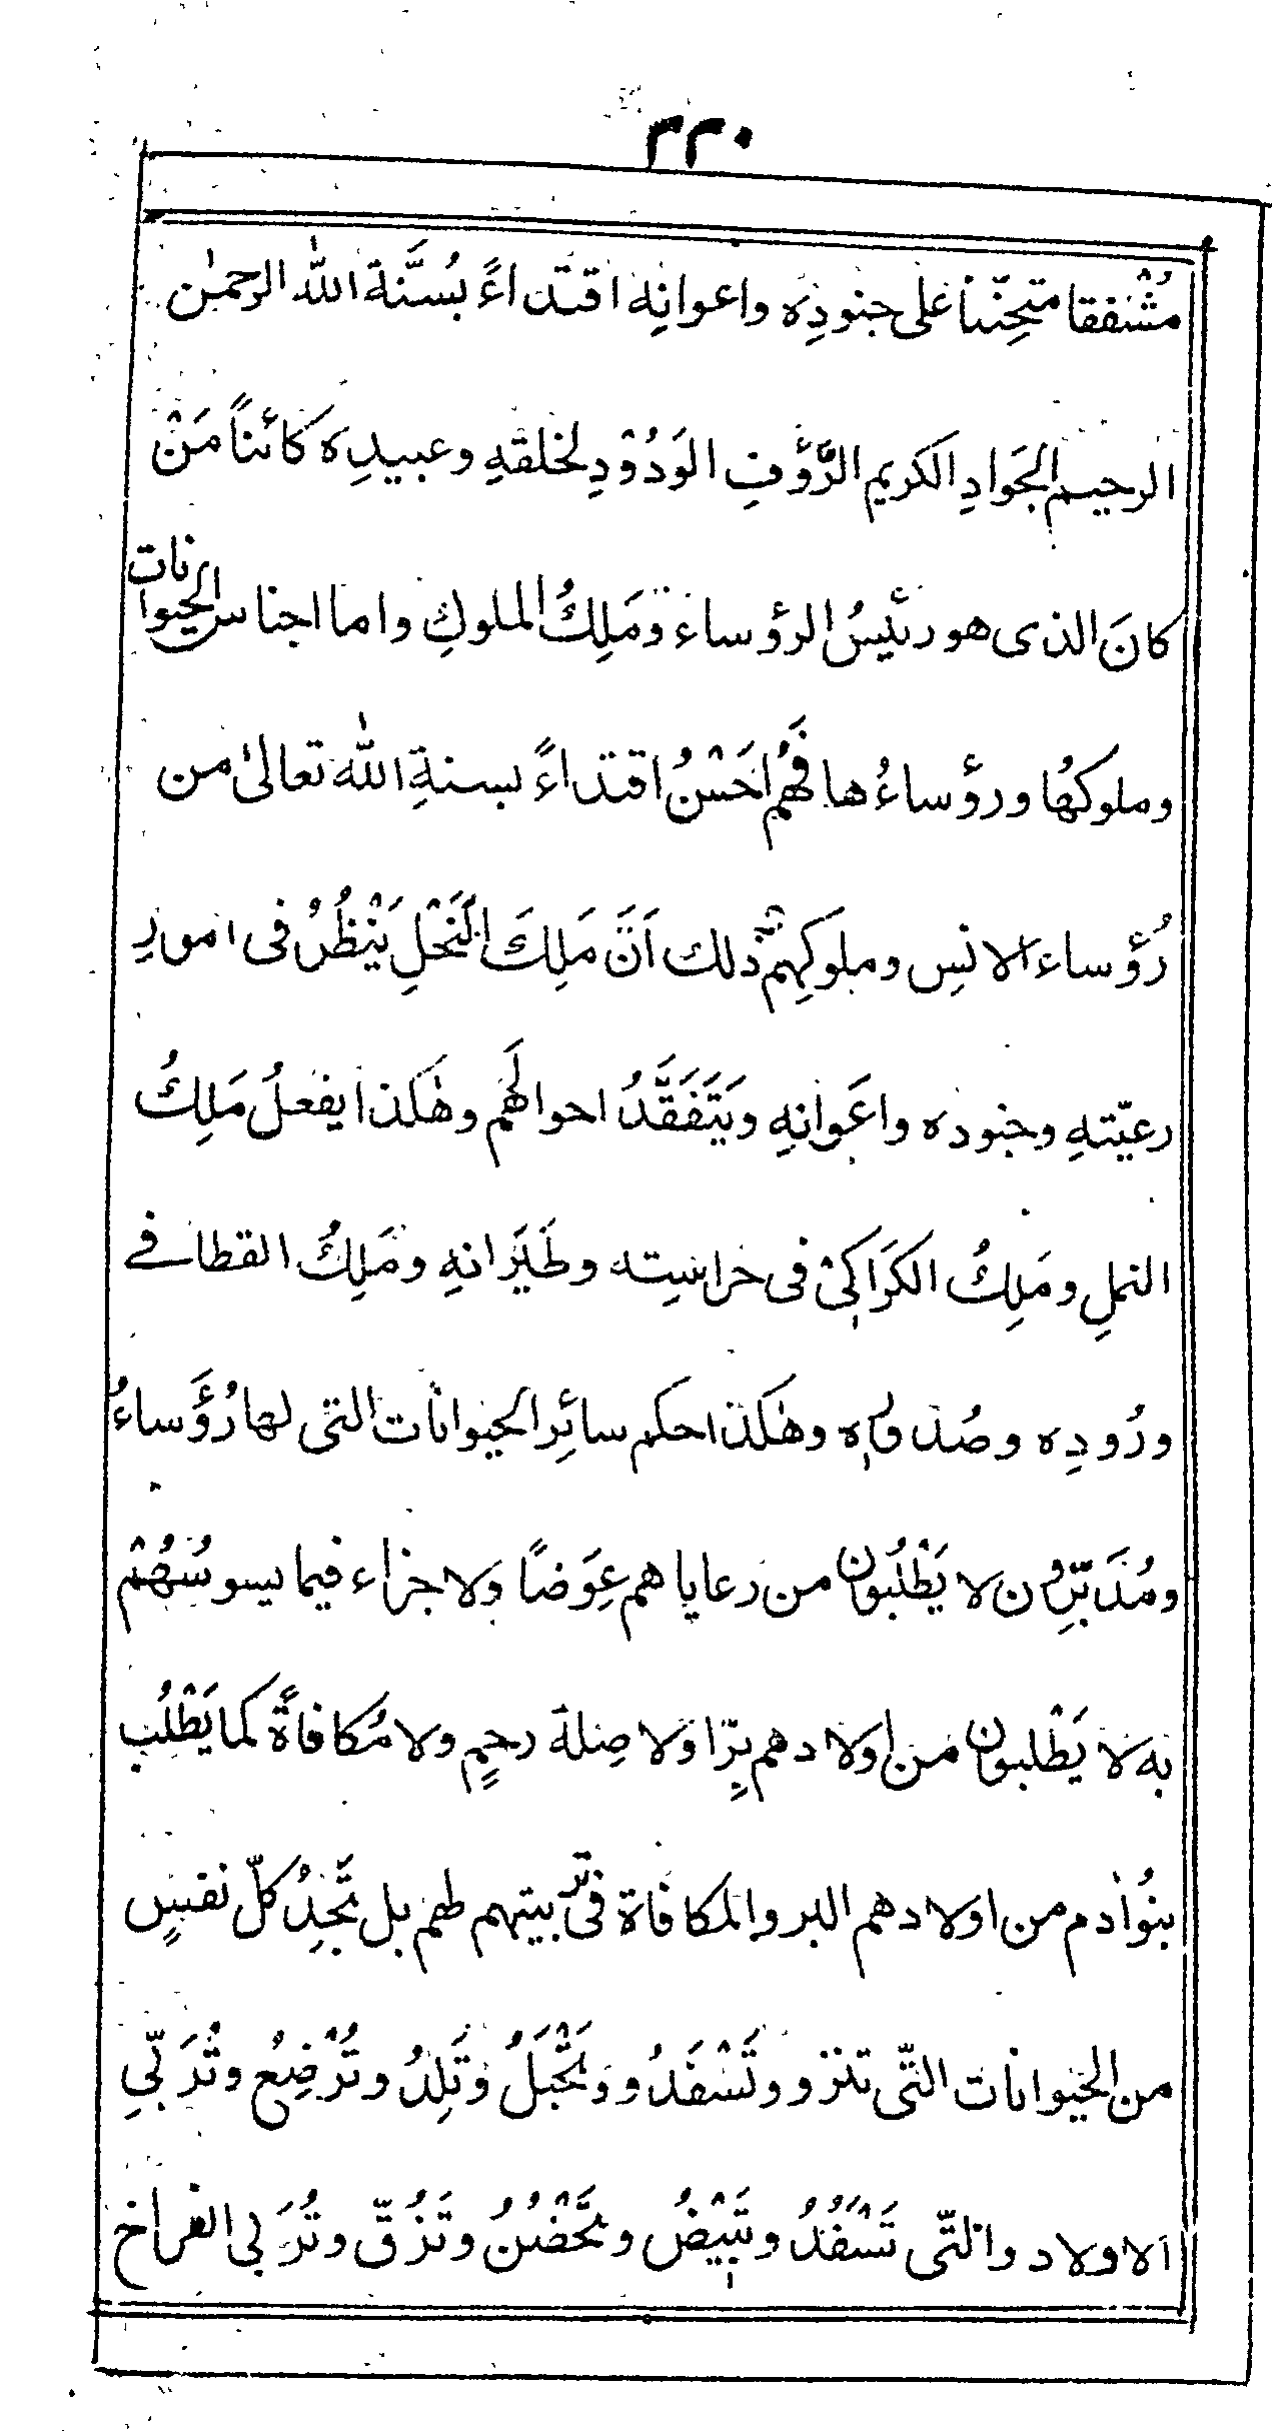 ٢٢٠
مُشْفقا متحنِّنا على جنودِه واعوانِه اقتداءً بسُنَّة الله الرحمٰن
الرحيم الجَوادِ الكريم الرَّؤفِ الوَدُوْدِ لخلقهِ وعبيدِه كائناً مَنْ
كانَ الذى هو رئيسُ الرؤساء ومَلِكُ الملوكِ واما اجناس الحيوانات
وملوكهُا ورؤساءُها فَهُم اَحْسَنُ اقتداءً بسنةِ الله تعالىٰ من
رُؤساء الانسِ وملوكِهِم ذلك اَنَّ مَلِكَ النَحْلِ يَنْظُرُ فى امورِ
رعيّتهِ وجنوده واعَوانِهِ ويَتَفَقَّدُ احوالَهُم وهٰكذا يفعلُ مَلِكُ
النملِ ومَلِكُ الكَرَاكىْ فى حراسِته وطَيَرانهِ ومَلِكُ القطافے
ورُودِه وصُدُوره وهٰكذا حكم سائِر الحيوانات التى لها رُؤَساءُ
ومُدَبِّرُون لا يَطْلُبونَ من رعاياهم عِوَضًا ولا جزاء فيما يسوسُهُمْ
به لا يَطْلبون من اولادهم بِرّا ولا صِلةَ رحمٍ ولا مُكافأةً كما يَطْلُب
بنوُادم من اولادهم البر والمكافاة فى تَربيتهم لهم بل تَجِدُ كلّ نفسٍ
من الحيوانات التّى تنزو وتَسْفَدُ و وتَحْبَلُ وتَلِدُ وتُرْضِعُ وتُرَبّيِ
الاولاد والتّى تَسْفَدُ وتَبْيَضُ وتَحْضُنُ وتَزُقّ وتُرَبى الفراخ